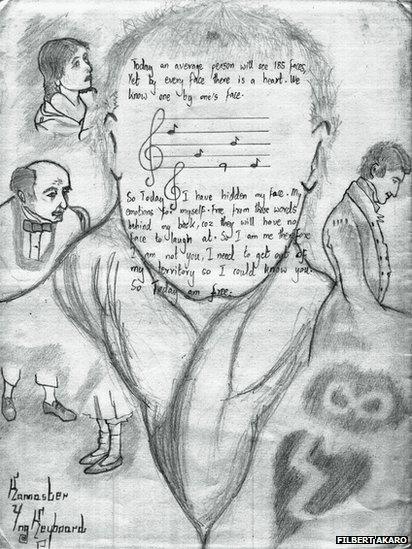 Today an average person will see 185 faces,
Yet by every face there is a heart. We
know one by one's face.
So Today I have hidden my face. My
emotions for myself. free from those words
behind my back, coz they will have no
face to laugh at. So I am me therefore
I am not you, I need to get out of
my territory so I could know you.
So Today am free.
Hamaster
Yng Keyboard
@
FILBERT AKARO